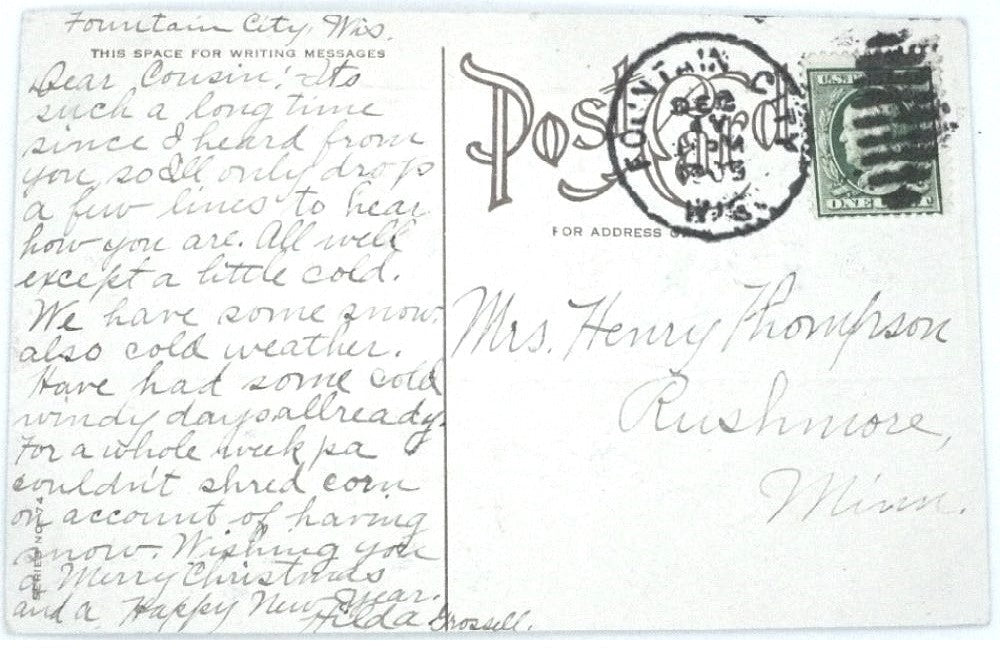 Fountain City, Wis.
THIS SPACE FOR WRITING MESSAGES
Dear Cousin:- Its
such a long time
since I heard from
you, so Ill only drop s
a few lines to hear
how you are. All well
except a little cold.
We have some snow,
also cold weather.
Have had some cold
windy days allready.
For a whole week pa
couldn't shred corn
on account of having
snow. Wishing you
a Merry Christmas
and a Happy New Year.
Hilda Grossell.
SERIES NO. 74
Post Card
FOR ADDRESS ONLY
FOUNTAIN CITY
DEC
WIS
U.S.
ONE
Mrs. Henry Thompson
Rushmore,
Minn.